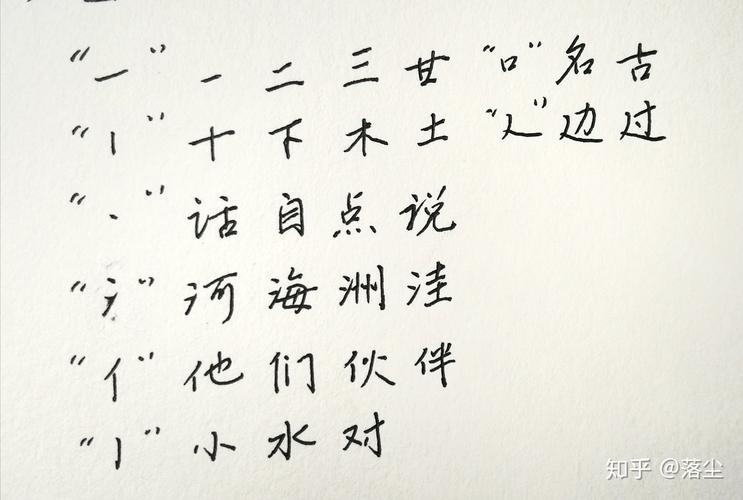 “一” 一 二 三 廿 “口” 名 古
“丨” 十 下 木 土 “辶” 边 过
“丶” 话 自 点 说
“氵” 河 海 洲 洼
“亻” 他 们 伙 伴
“亅” 小 水 对
知乎 @落尘